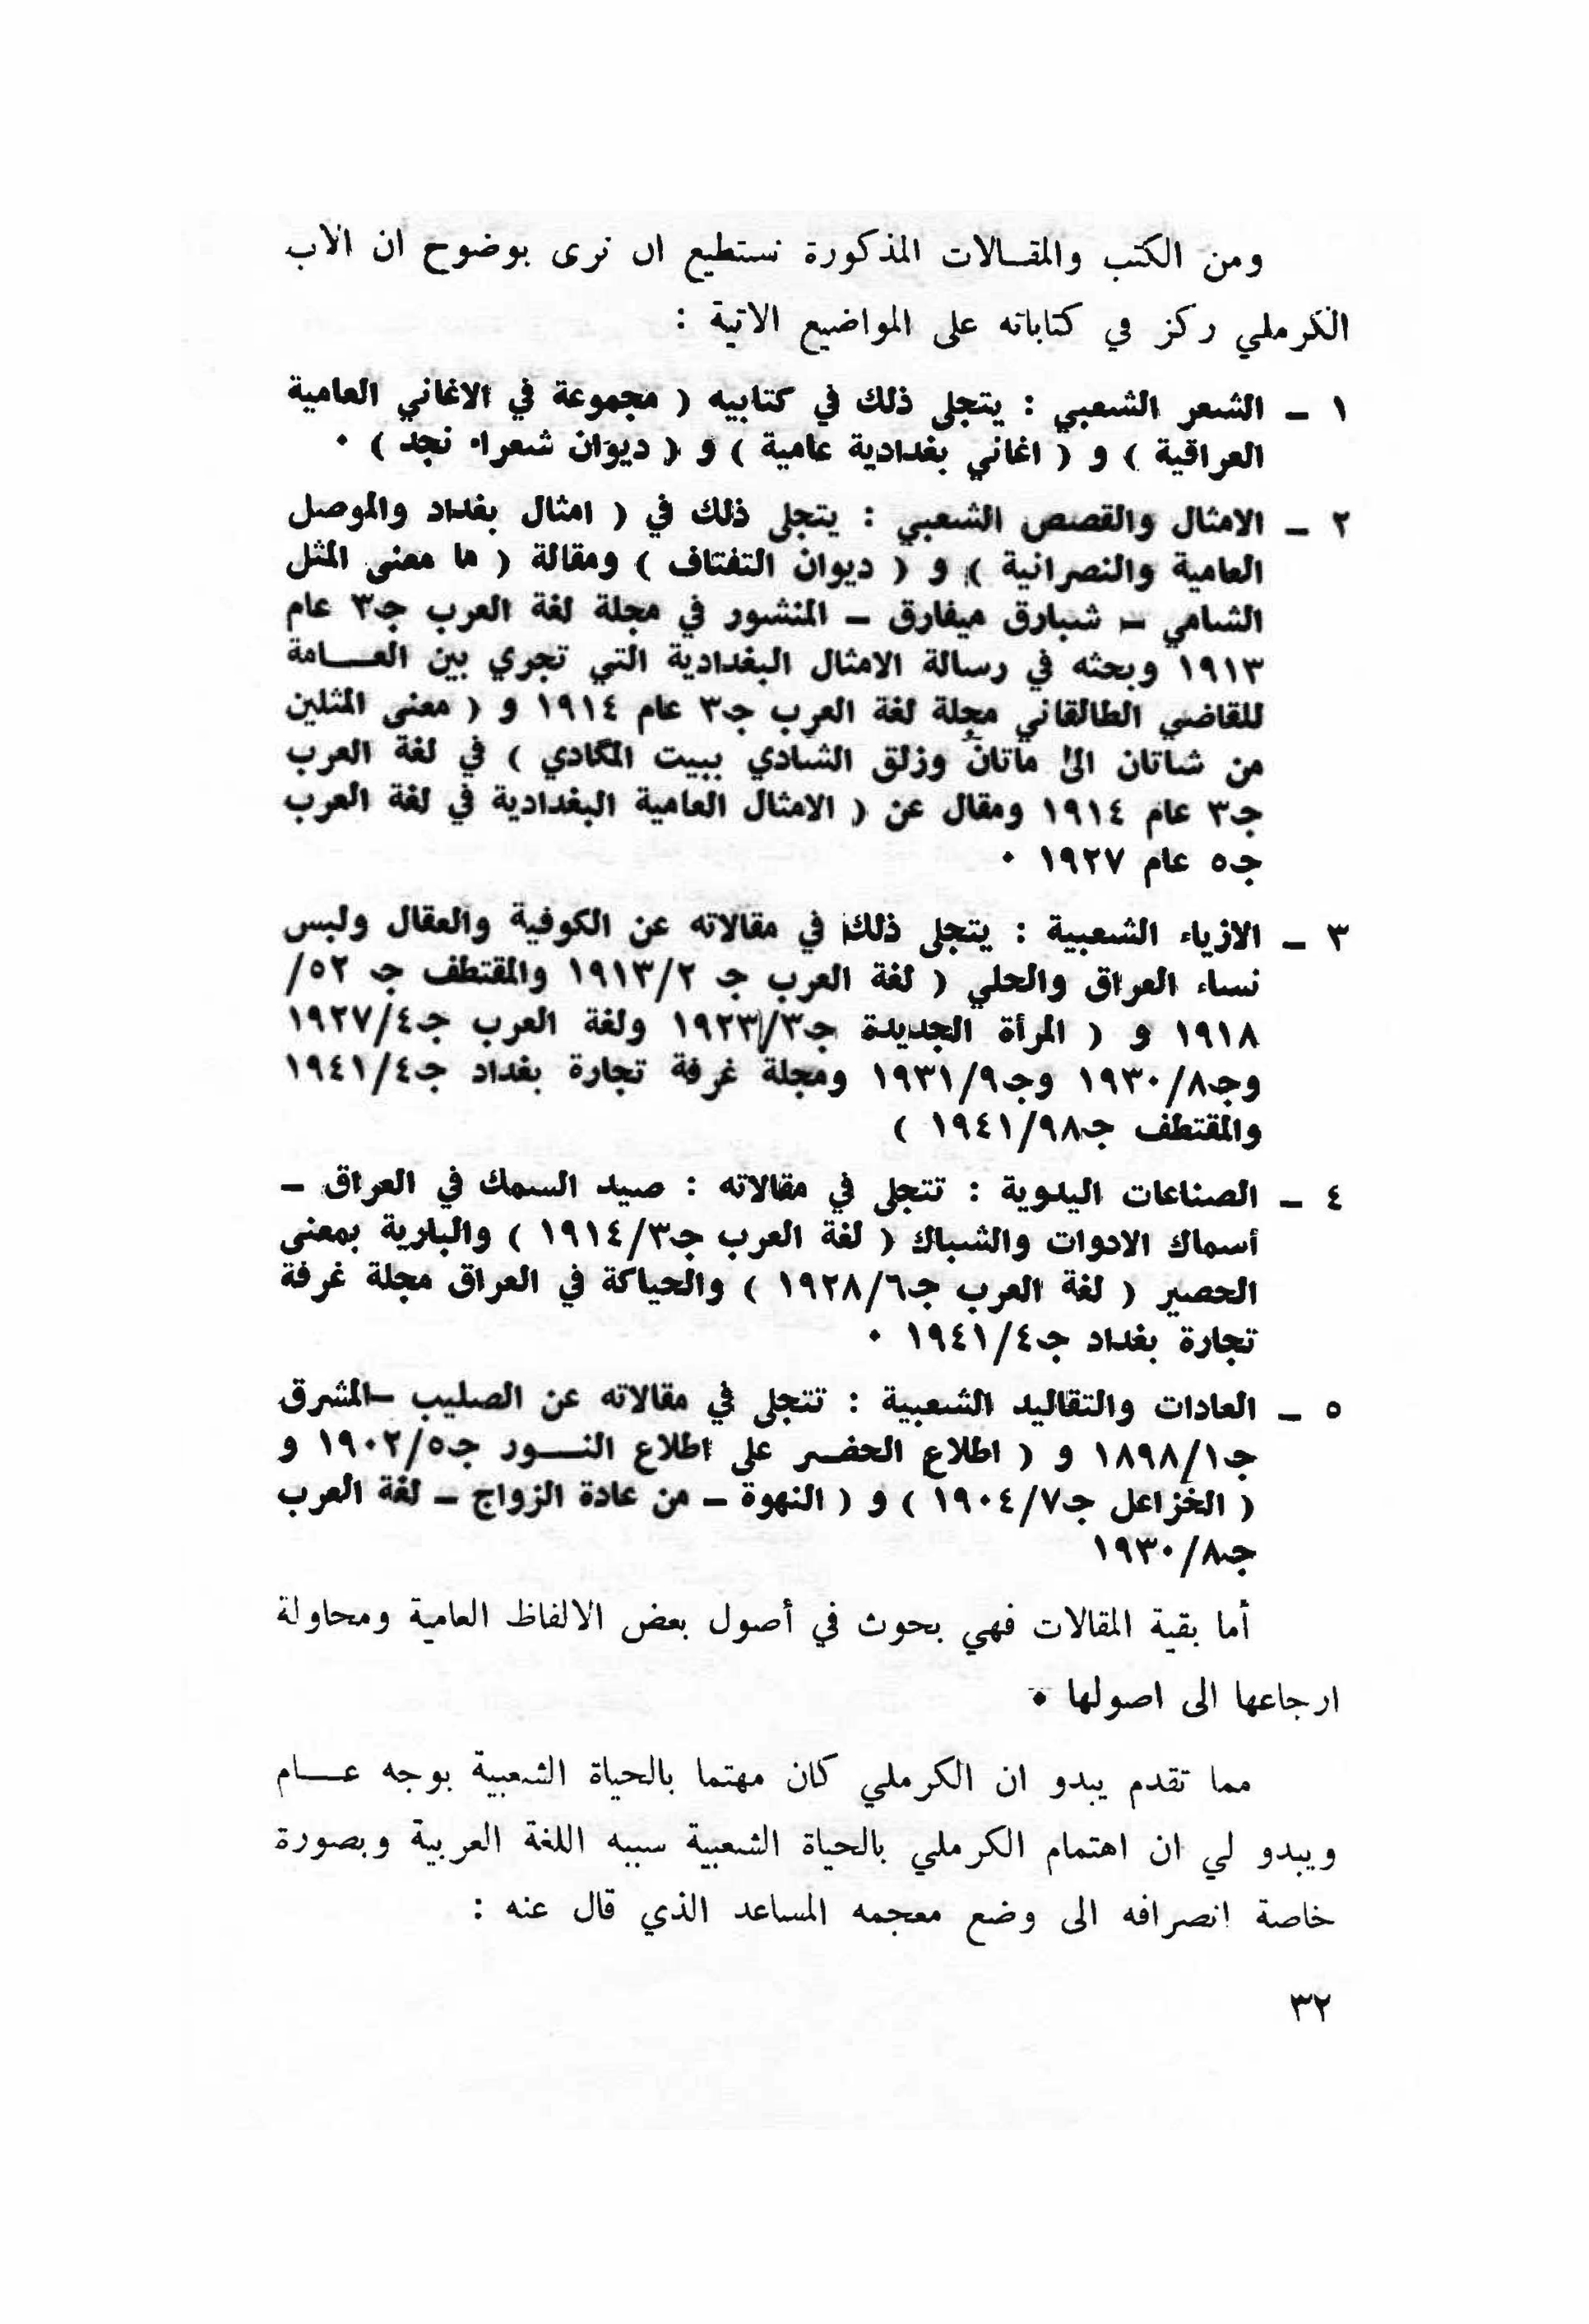 ومن الكتب والمقـالات المذكورة نستطيع ان نرى بوضوح ان الاب
الكرملي ركز في كتاباته على المواضيع الاتية :
١ ـ الشعر الشعبي : يتجلى ذلك في كتابيه ( مجموعة في الاغاني العامية
العراقية ) و ( اغاني بغدادية عامية ) و ( ديوان شعراء نجد ) ٠
٢ ـ الامثال والقصص الشعبي : يتجلى ذلك في ( امثال بغداد والموصل
العامية والنصرانية ) و ( ديوان التفتاف ) ومقالة ( ما معنى المثل
الشامي ـ شبارق ميفارق ـ المنشور في مجلة لغة العرب جـ٣ عام
١٩١٣ وبحثه في رسالة الامثال البغدادية التي تجري بين العـــامة
للقاضي الطالقاني مجلة لغة العرب جـ٣ عام ١٩١٤ و ( معنى المثلين
من شاتان الى ماتان وزلق الشادي ببيت المگادي ) في لغة العرب
جـ٣ عام ١٩١٤ ومقال عن ( الامثال العامية البغدادية في لغة العرب
جـ٥ عام ١٩٢٧ ٠
٣ ـ الازياء الشعبية : يتجلى ذلك في مقالاته عن الكوفية والعقال ولبس
نساء العراق والحلي ( لغة العرب جـ ١٩١٣/٢ والمقتطف جـ ٥٢/
١٩١٨ و ( المرأة الجديدة جـ١٩٢٣/٣ ولغة العرب جـ١٩٢٧/٤
وجـ١٩٣٠/٨ وجـ١٩٣١/٩ ومجلة غرفة تجارة بغداد جـ١٩٤١/٤
والمقتطف جـ١٩٤١/٩٨ )
٤ ـ الصناعات اليدوية : تتجلى في مقالاته : صيد السمك في العراق ـ
أسماك الادوات والشباك ( لغة العرب جـ١٩١٤/٣ ) والبارية بمعنى
الحصير ( لغة العرب جـ١٩٢٨/٦ ) والحياكة في العراق مجلة غرفة
تجارة بغداد جـ١٩٤١/٤ ٠
٥ ـ العادات والتقاليد الشعبية : تتجلى في مقالاته عن الصليب ـالمشرق
جـ١٨٩٨/١ و ( اطلاع الحضـر على اطلاع النـــور جـ١٩٠٢/٥ و
( الخزاعل جـ١٩٠٤/٧ ) و ( النهوة ـ من عادة الزواج ـ لغة العرب
جـ١٩٣٠/٨
أما بقية المقالات فهي بحوث في أصول بعض الالفاظ العامية ومحاولة
ارجاعها الى اصولها ٠
مما تقدم يبدو ان الكرملي كان مهتما بالحياة الشعبية بوجه عـــام
ويبدو لي ان اهتمام الكرملي بالحياة الشعبية سببه اللغة العربية وبصورة
خاصة انصرافه الى وضع معجمه المساعد الذي قال عنه :
٣٢